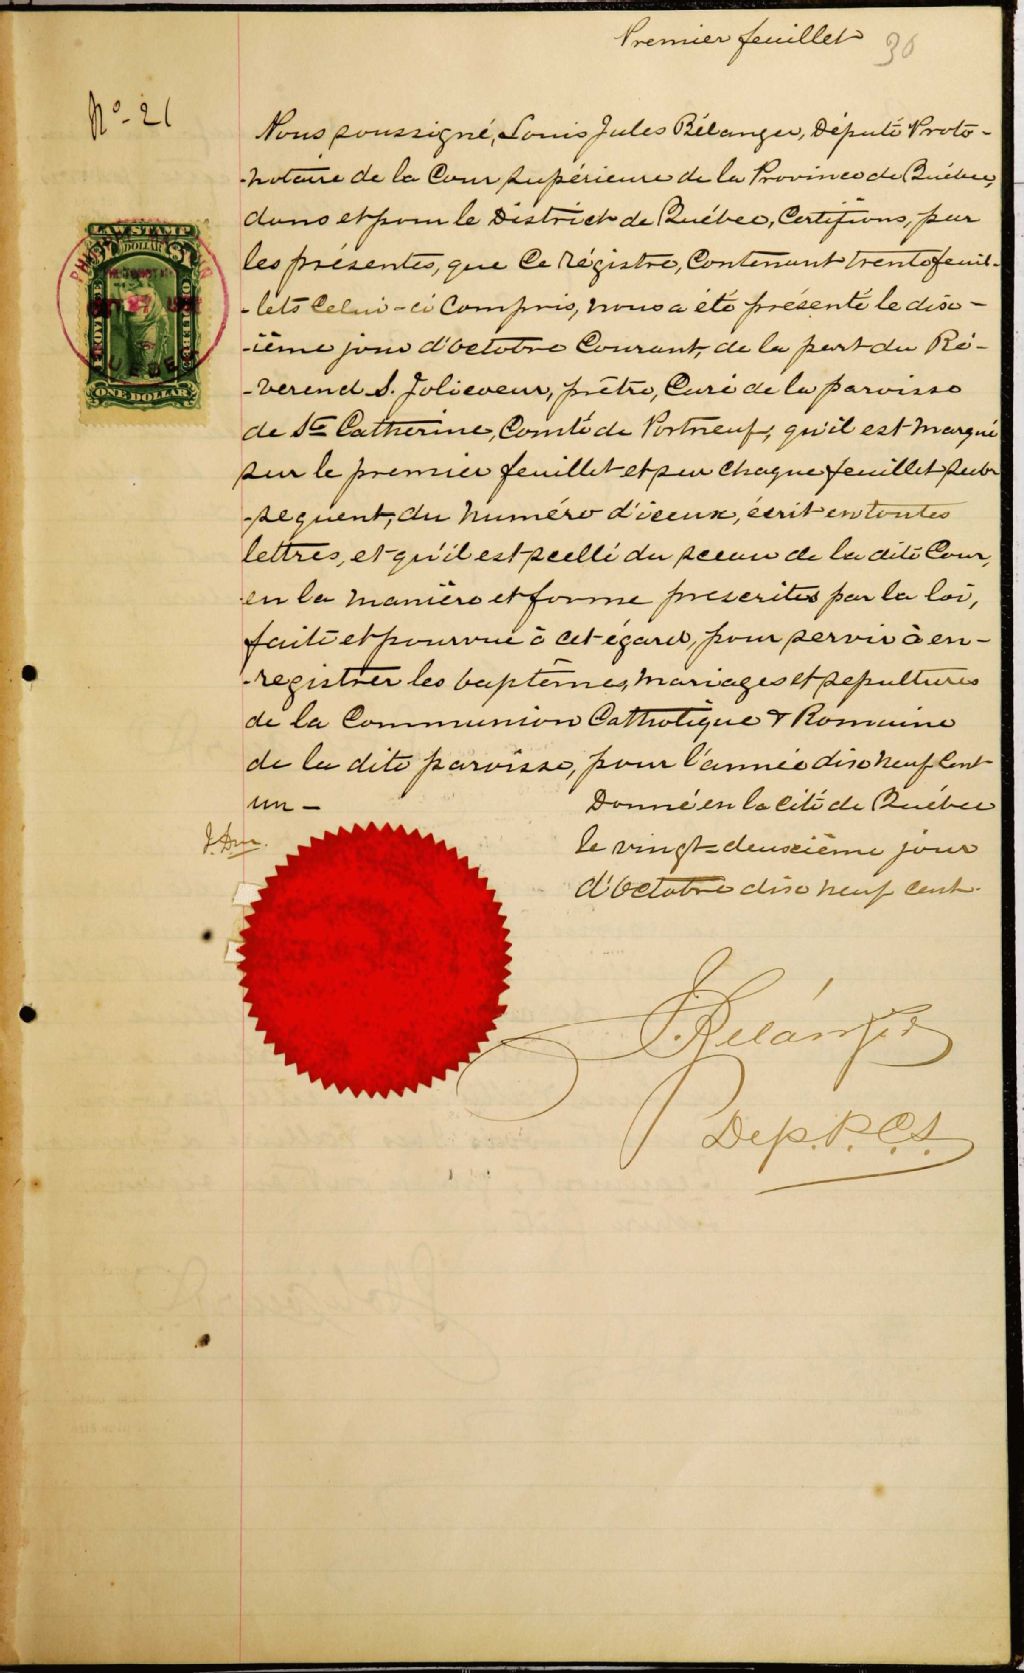 Premier feuillet
30
No - 21
Nous soussigné, Louis Jules Bélanger, Député Proto-
-notaire de la Cour supérieure de la Province de Québec,
dans et pour le District de Québec, Certifions, par
les présentes, que ce régistre, contenant trente feuil-
-lets celui-ci compris, nous a été présenté le dix-
-ième jour d'octobre courant, de la part du Ré-
-verend S. Jolicoeur, prêtre, Curé de la paroisse
de Ste Catherine, Comté de Portneuf, qu'il est marqué
sur le premier feuillet et sur chaque feuillet sub-
-séquent, du numéro d'iceux, écrit en toutes
lettres, et qu'il est scellé du sceau de la dite Cour,
en la manière et forme prescrites par la loi,
faite et pourvue à cet égard, pour servir à en-
-registrer les baptêmes, mariages et sépultures
de la Communion Catholique & Romaine
de la dite paroisse, pour l'année dix neuf cent
un -
Donné en la Cité de Québec
le vingt-deuxième jour
d'Octobre dix neuf cent.
LAW STAMP
DOLLAR
PROVINCE
QUEBEC
ONE DOLLAR
QUEBEC
J. Bélanger
Dep. P. C. S.